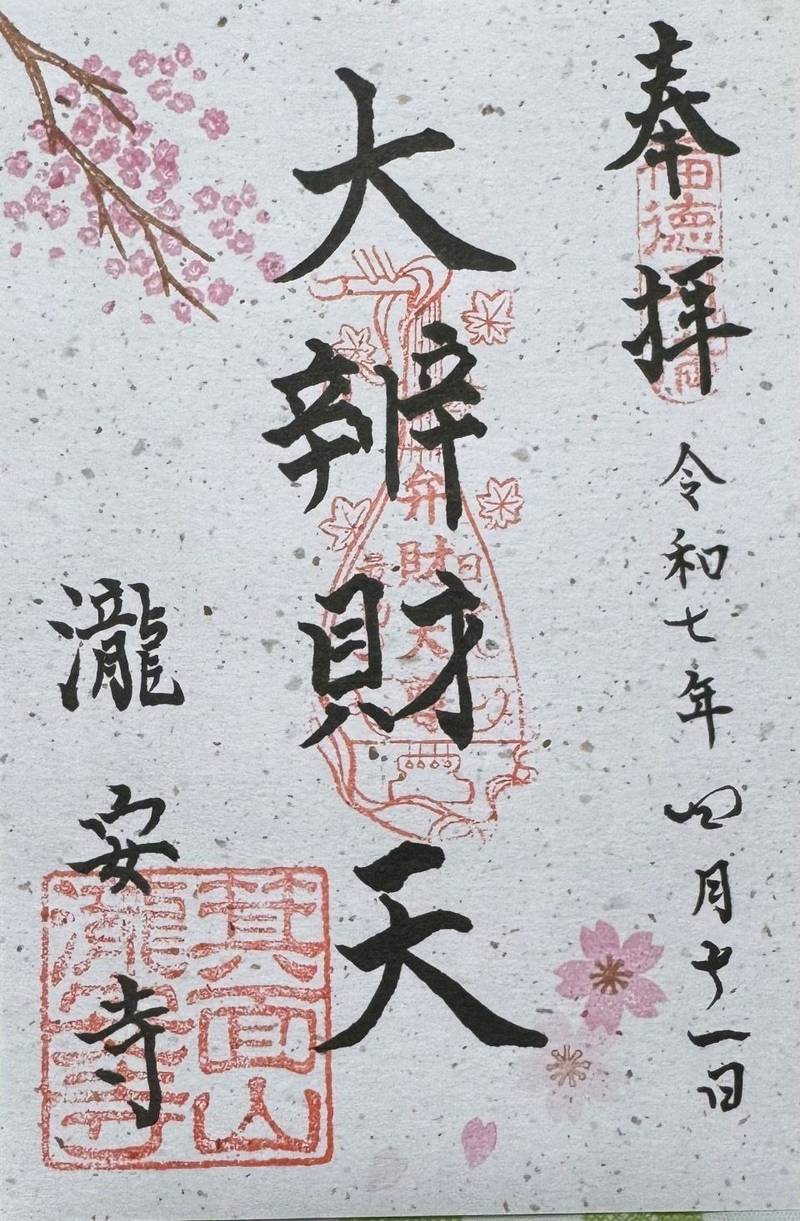 奉拝
令和七年四月十一日
大辨財天
瀧安寺
箕面山
瀧安寺
弁財天
福徳